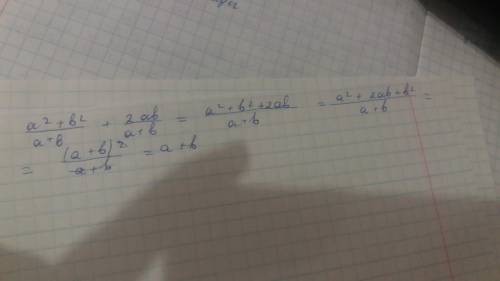 (a² + b²)/(a+b) + 2ab/(a+b) = (a² + b² + 2ab)/(a+b) = (a² + 2ab + b²)/(a+b) =
= (a+b)²/(a+b) = a+b